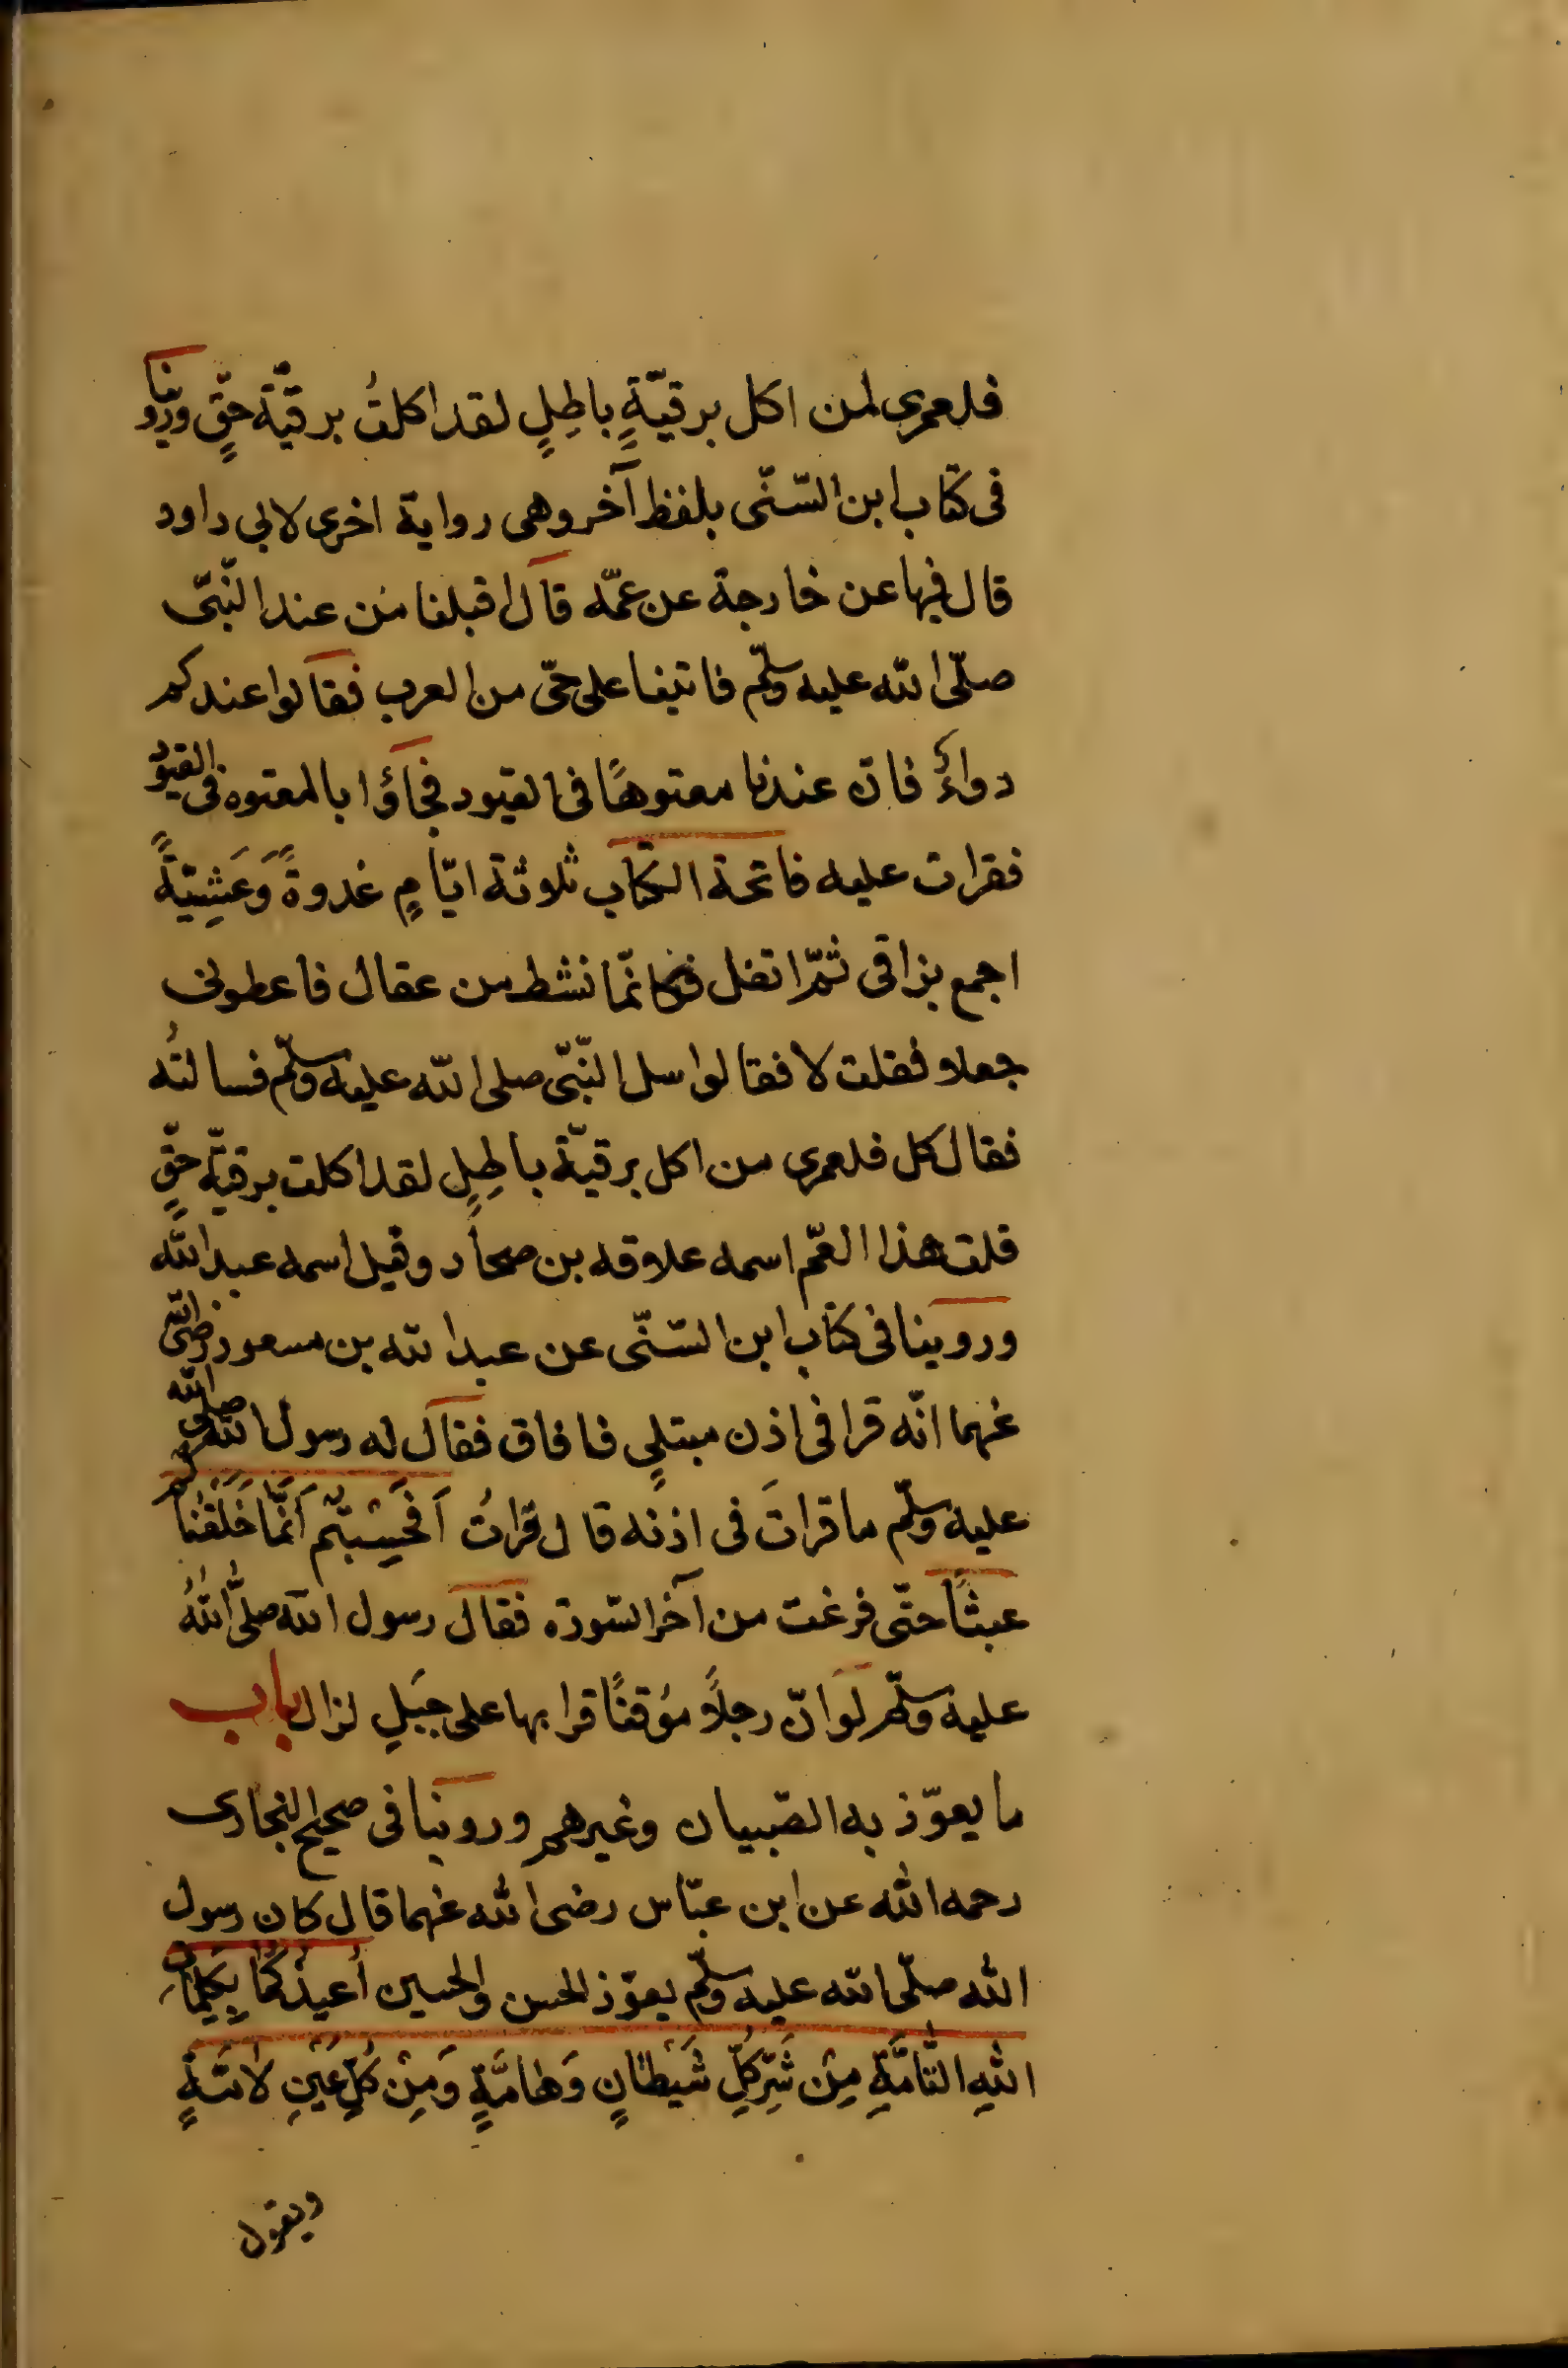 فلعمرى لمن اكل برقيّةٍ باطِلٍ لقد اكلتُ برقيّة حقٍّ وروينا
فى كتاب ابن السّنّى بلفظ آخر وهى رواية اخرى لابى داود
قال فيها عن خارجة عن عمّه قال اقبلنا من عند النّبّى
صلّى الله عليه وسلّم فاتينا على حّى من العرب فقالوا عندكم
دواءٌ فان عندنا معتوهًا فى القيود فجاؤا بالمعتوه فى القيود
فقرات عليه فاتحة الكتاب ثلوثة ايّامٍ غدوةً وَعَشِيّةً
اجمع بزاقى ثمّ اتفل فكانّما نشط من عقال فاعطونى
جعلا فقلت لا فقالوا سل النّبّى صلى الله عليه وسلّم فسالتُه
فقال كل فلعمرى من اكل برقيّة باطِلٍ لقد اكلت برقيّة حقٍّ
قلت هذا العّم اسمه علاقه بن صحار وقيل اسمه عبد الله
وروينا فى كتاب ابن السّنّى عن عبد الله بن مسعود رضى الله
عنهما انّه قرا فى اذن مبتلىٍ فافاق فقال له رسول الله صلى الله
عليه وسلّم ما قراتَ فى اذنه قال قراتُ اَفَحَسِبْتُمْ اَنَّمَا خَلَقْنَاكُمْ
عبثًا حتّى فرغت من آخر السّورة فقال رسول الله صلَّى اللهُ
عليه وسلّم لَو انّ رجلًا مُوقنًا قرا بها على جبَلٍ لزال باب
ما يعوّذ به الصّبيان وغيرهم وروينا فى صحيح البخارى
رحمه الله عن ابن عبّاس رضى الله عنهما قال كان رسول
الله صلّى الله عليه وسلّم يعوّذ الحسن والحسين اُعيذُكُمَا بِكَلِمَاتِ
اللهِ التَّامَّةِ مِنْ شَرِّ كُلِّ شَيْطَانٍ وَهَامَّةٍ وَمِنْ كُلِّ عَيْنٍ لَامَّةٍ
ويقول